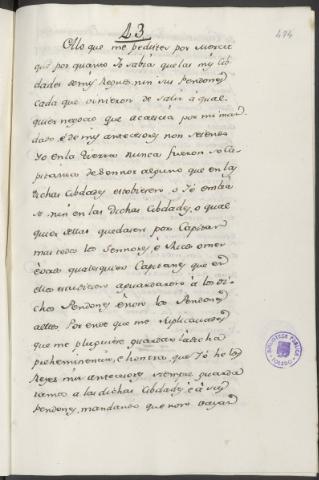 43
474
A lo que me pedistes por merced
que por quanto Yo sabia que las mis Cib
dades de mis Reynos nin sus Pendones
Cada que vinieron de Salir à qual
quier negocio que acaescia por mi man
dado è de mis antecesores non seiendo
Yo en la Guerra nunca fueron so Ca
pitania de Sennor alguno que en las
dichas Cibdades estobieren, o Yo embia
se nin en las dichas Cibdades, o qual
quier dellas quedaren por Capitan
mas todos los Sennores, è Ricos omes
è otros qualesquier Capitanes que en
ellas aguardaron à los di
chos Pendones è non los Pendones
aellos Por ende que me suplicavades
que me pluguiese guardar la dicha
preheminencia, è honrra que Yo he los
Reyes mis antecesores siempre guarda
ramos a las dichas Cibdades è à sus
Pendones, mandando que non vayan
BIBLIOTECA PUBLICA
TOLEDO